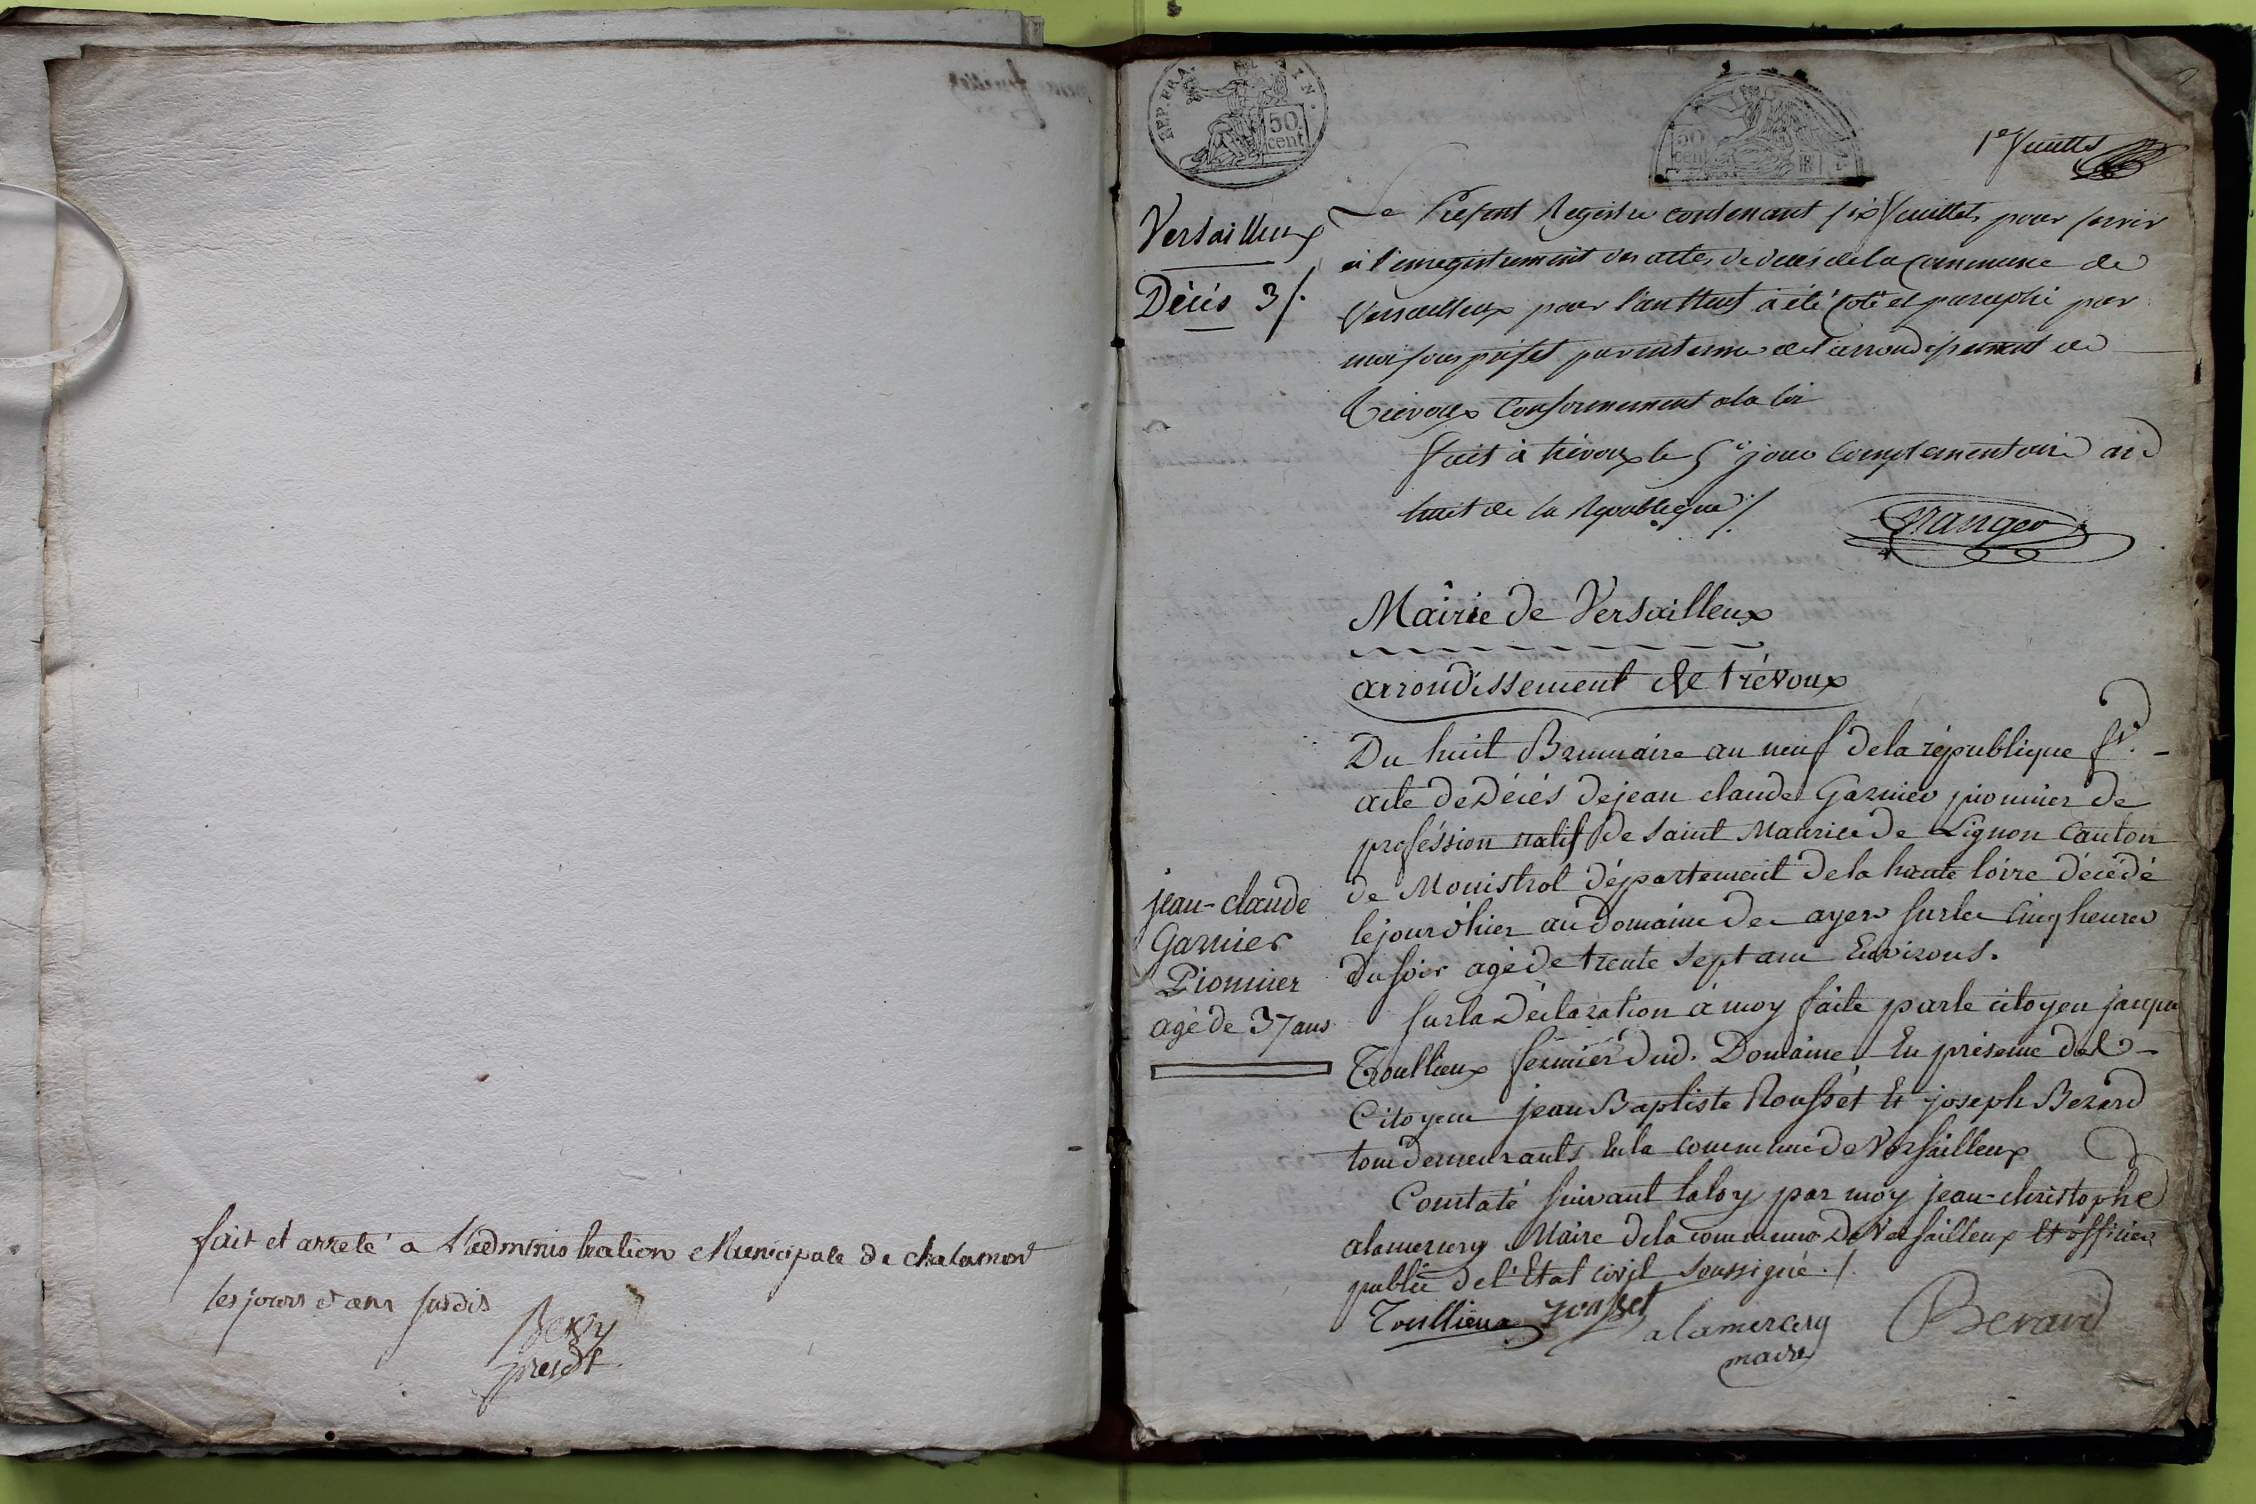 fait et arreté a l'administration Municipale de chalamont
les jours et an susdis
presdt
REP. FRA.
50
cent
50
cent
1er feuillet
Versailleux
Décés 3/.
Le Present Registre contenant six feuillets pour servir
a l'enregistrement des actes de décés de la Commune de
Versailleux pour l'an neuf a été coté et paraphé par
moi sous préfet par interim de l'arrondissement de
Trévoux Conformement a la loi
fait à trévoux le 5e jour Complementaire an
huit de la Republique /.
Mairie de Versailleux
arrondissement de trévoux
Du huit Brumaire an neuf de la république fr.
acte de Décés de jean claude Garnier pionnier de
proféssion natif de saint Maurice de Lignon Canton
de Monistrol département de la haute loire décédé
le jour d'hier au domaine des ayes sur les cinq heures
du soir agé de trente sept ans Environs.
jean-claude
Garnier
Pionnier
agé de 37 ans
sur la Déclaration à moy faite par le citoyen jaques
Toullieux fermiér dud. Domaine En présence des
Citoyens jean Baptiste Rousset Et joseph Berard
tous demeurants En la commune de Versailleux
Constaté suivant la loy par moy jean-christophe
alamercery Maire de la commune de Versailleux Et officier
public de l'Etat civil soussigné ./.
Toullieux rousset alamercery Berard
maire